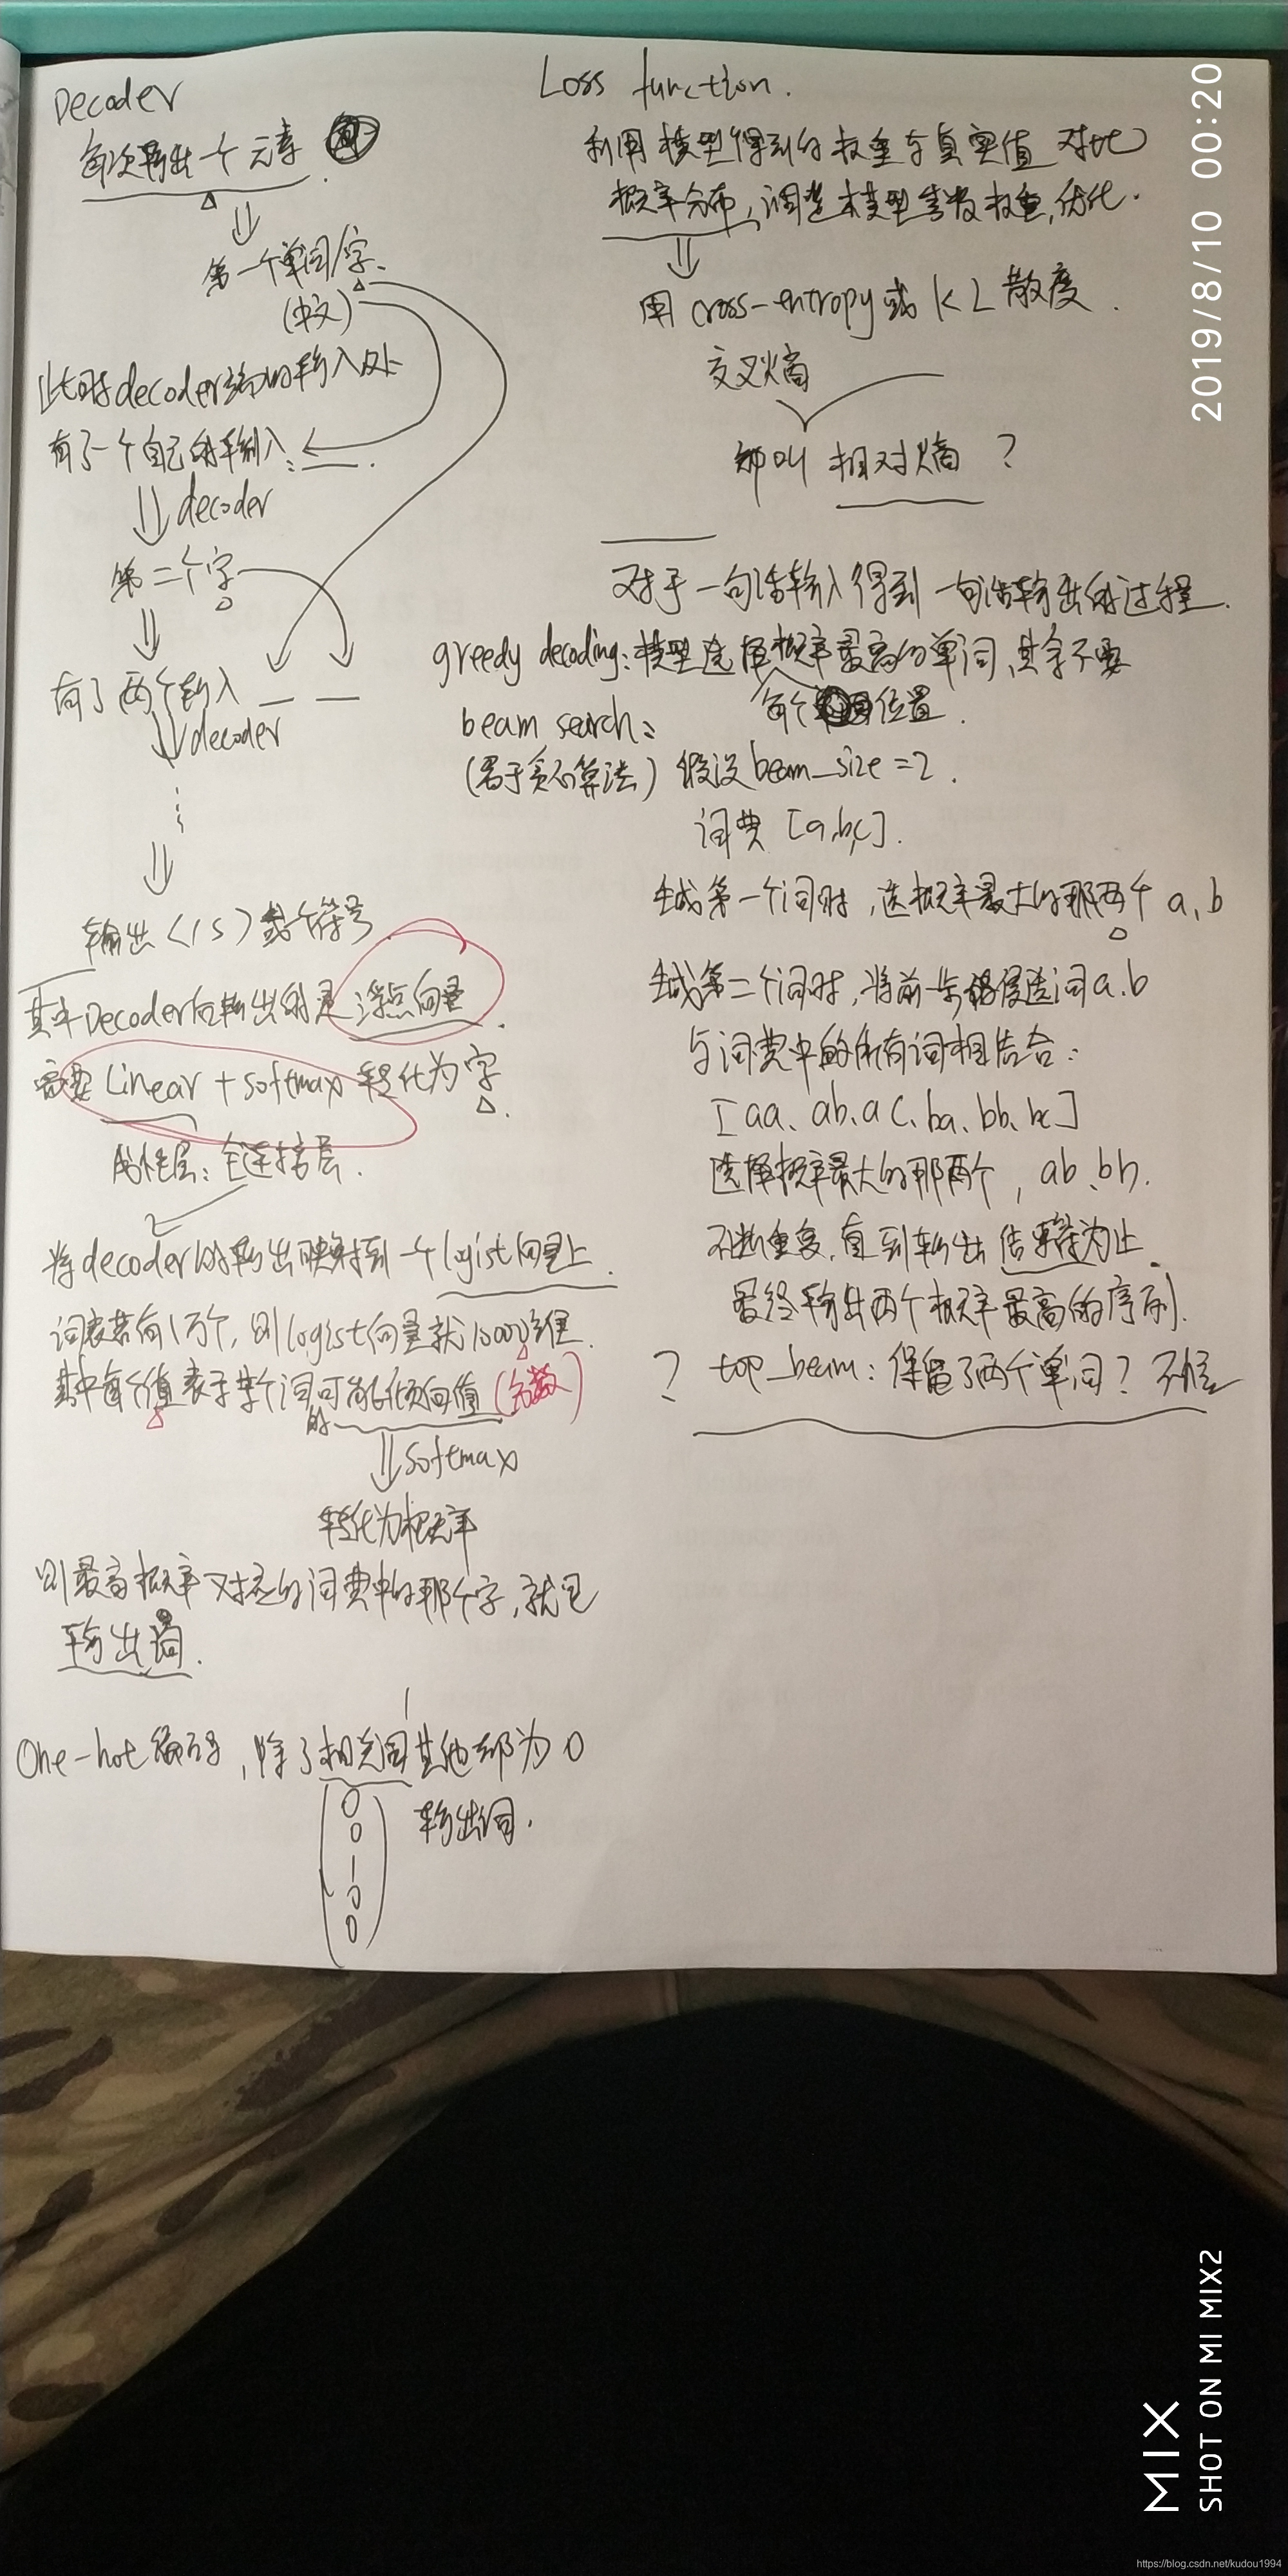 Decoder
每次输出一个元素.
第一个单词/字.
(中文)
此时decoder端的输入处
有了一个自己的输入:
decoder
第二个字
有了两个输入
decoder
输出</s>或个符号
其中Decoder后输出的是浮点向量.
需要Linear + softmax 转化为字.
线性层:全连接层.
将decoder的输出映射到一个logist向量上.
词表若有1万个,则logist向量就10000维.
其中每个值表示某个词的可能倾向值(分数)
softmax
转化为概率
则最高概率对应的词典中的那个字,就是
输出词.
1
One-hot编码,除了相关词其他都为0
输出词.
0
0
1
0
0
Loss function.
利用模型得到的权重与真实值 对比
概率分布,调整模型参数权重,优化.
用cross-entropy或 KL散度.
交叉熵
都叫 相对熵 ?
对于一句话输入得到一句话输出的过程.
greedy decoding:模型选择概率最高的单词,其余不要
每个位置.
beam search:
(君于贪心算法) 假设beam_size=2.
词典 [a,b,c].
生成第一个词时,选概率最大的那两个 a、b
生成第二个词时,将前一步候选词a.b
与词典中的所有词相结合:
[aa、ab、ac、ba、bb、bc]
选择概率最大的那两个, ab、bb.
不断重复,直到输出结束符为止.
最终输出两个概率最高的序列.
? top_beam:保留了两个单词?不懂
2019/8/10 00:20
MIX
SHOT ON MI MIX2
https://blog.csdn.net/kudou1994